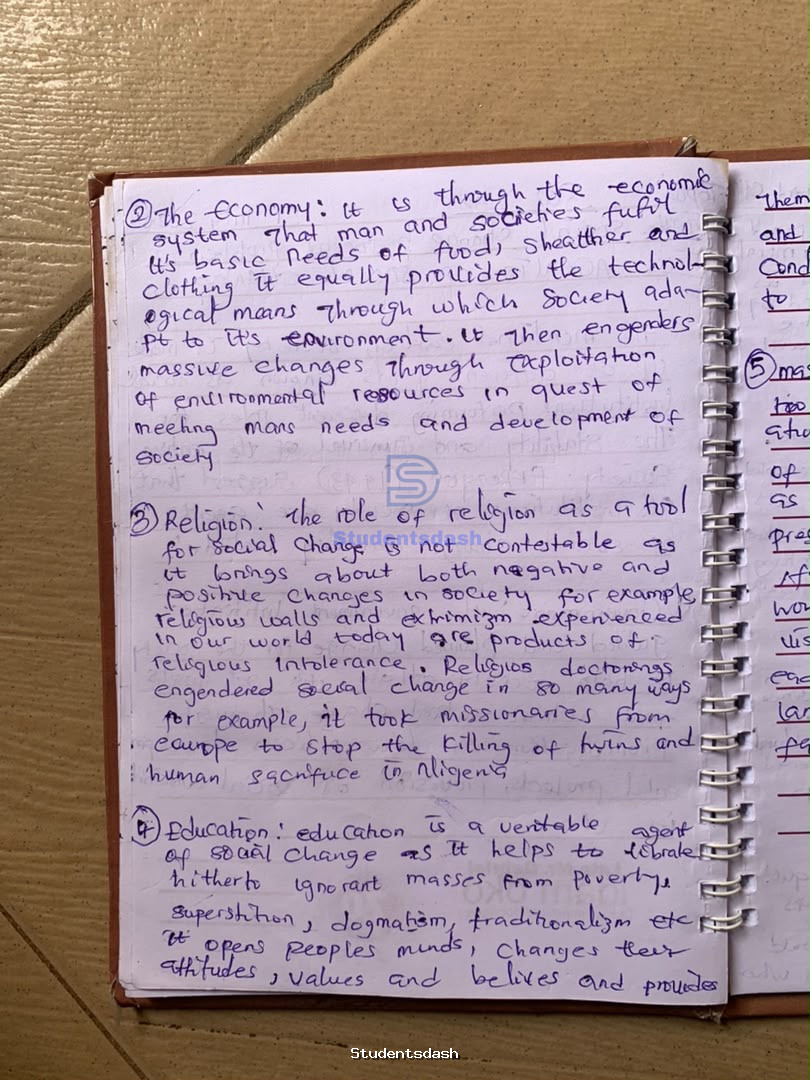 ② The Economy: it is through the economic
system that man and societies fufil
it's basic needs of food, sheatther and
clothing it equally provides the technol-
ogical means through which society ada-
pt to it's environment. it then engenders
massive changes through exploitation
of environmental resources in quest of
meeting mans needs and development of
society
③ Religion: the role of religion as a tool
for social change is not contestable as
it brings about both negative and
positive changes in society for example,
religious walls and extrimizm experienced
in our world today are products of
religious intolerance. Religios doctorings
engendered social change in so many ways
for example, it took missionaries from
eaurope to stop the killing of twins and
human sacrifuce in Nigeria
④ Education: education is a veritable agent
of social change as it helps to librate
hitherto ignorant masses from poverty,
superstition, dogmatism, traditionalizm etc
it opens peoples minds, changes their
attitudes, values and belives and provides
Them
and
Cond
to
⑤ mas
too
atio
of
as
pres
Af
wor
vis
eac
lar
fa
Studentsdash
Studentsdash